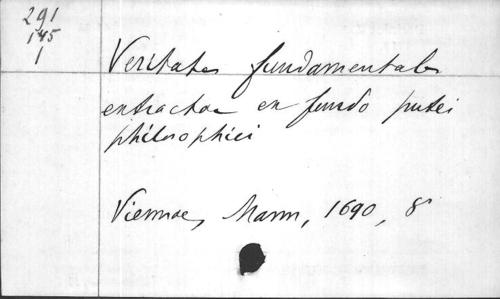 291
145
1
Veritates fundamentales
extractae ex fundo putei
philosophici
Viennae, Mann, 1690, 8°